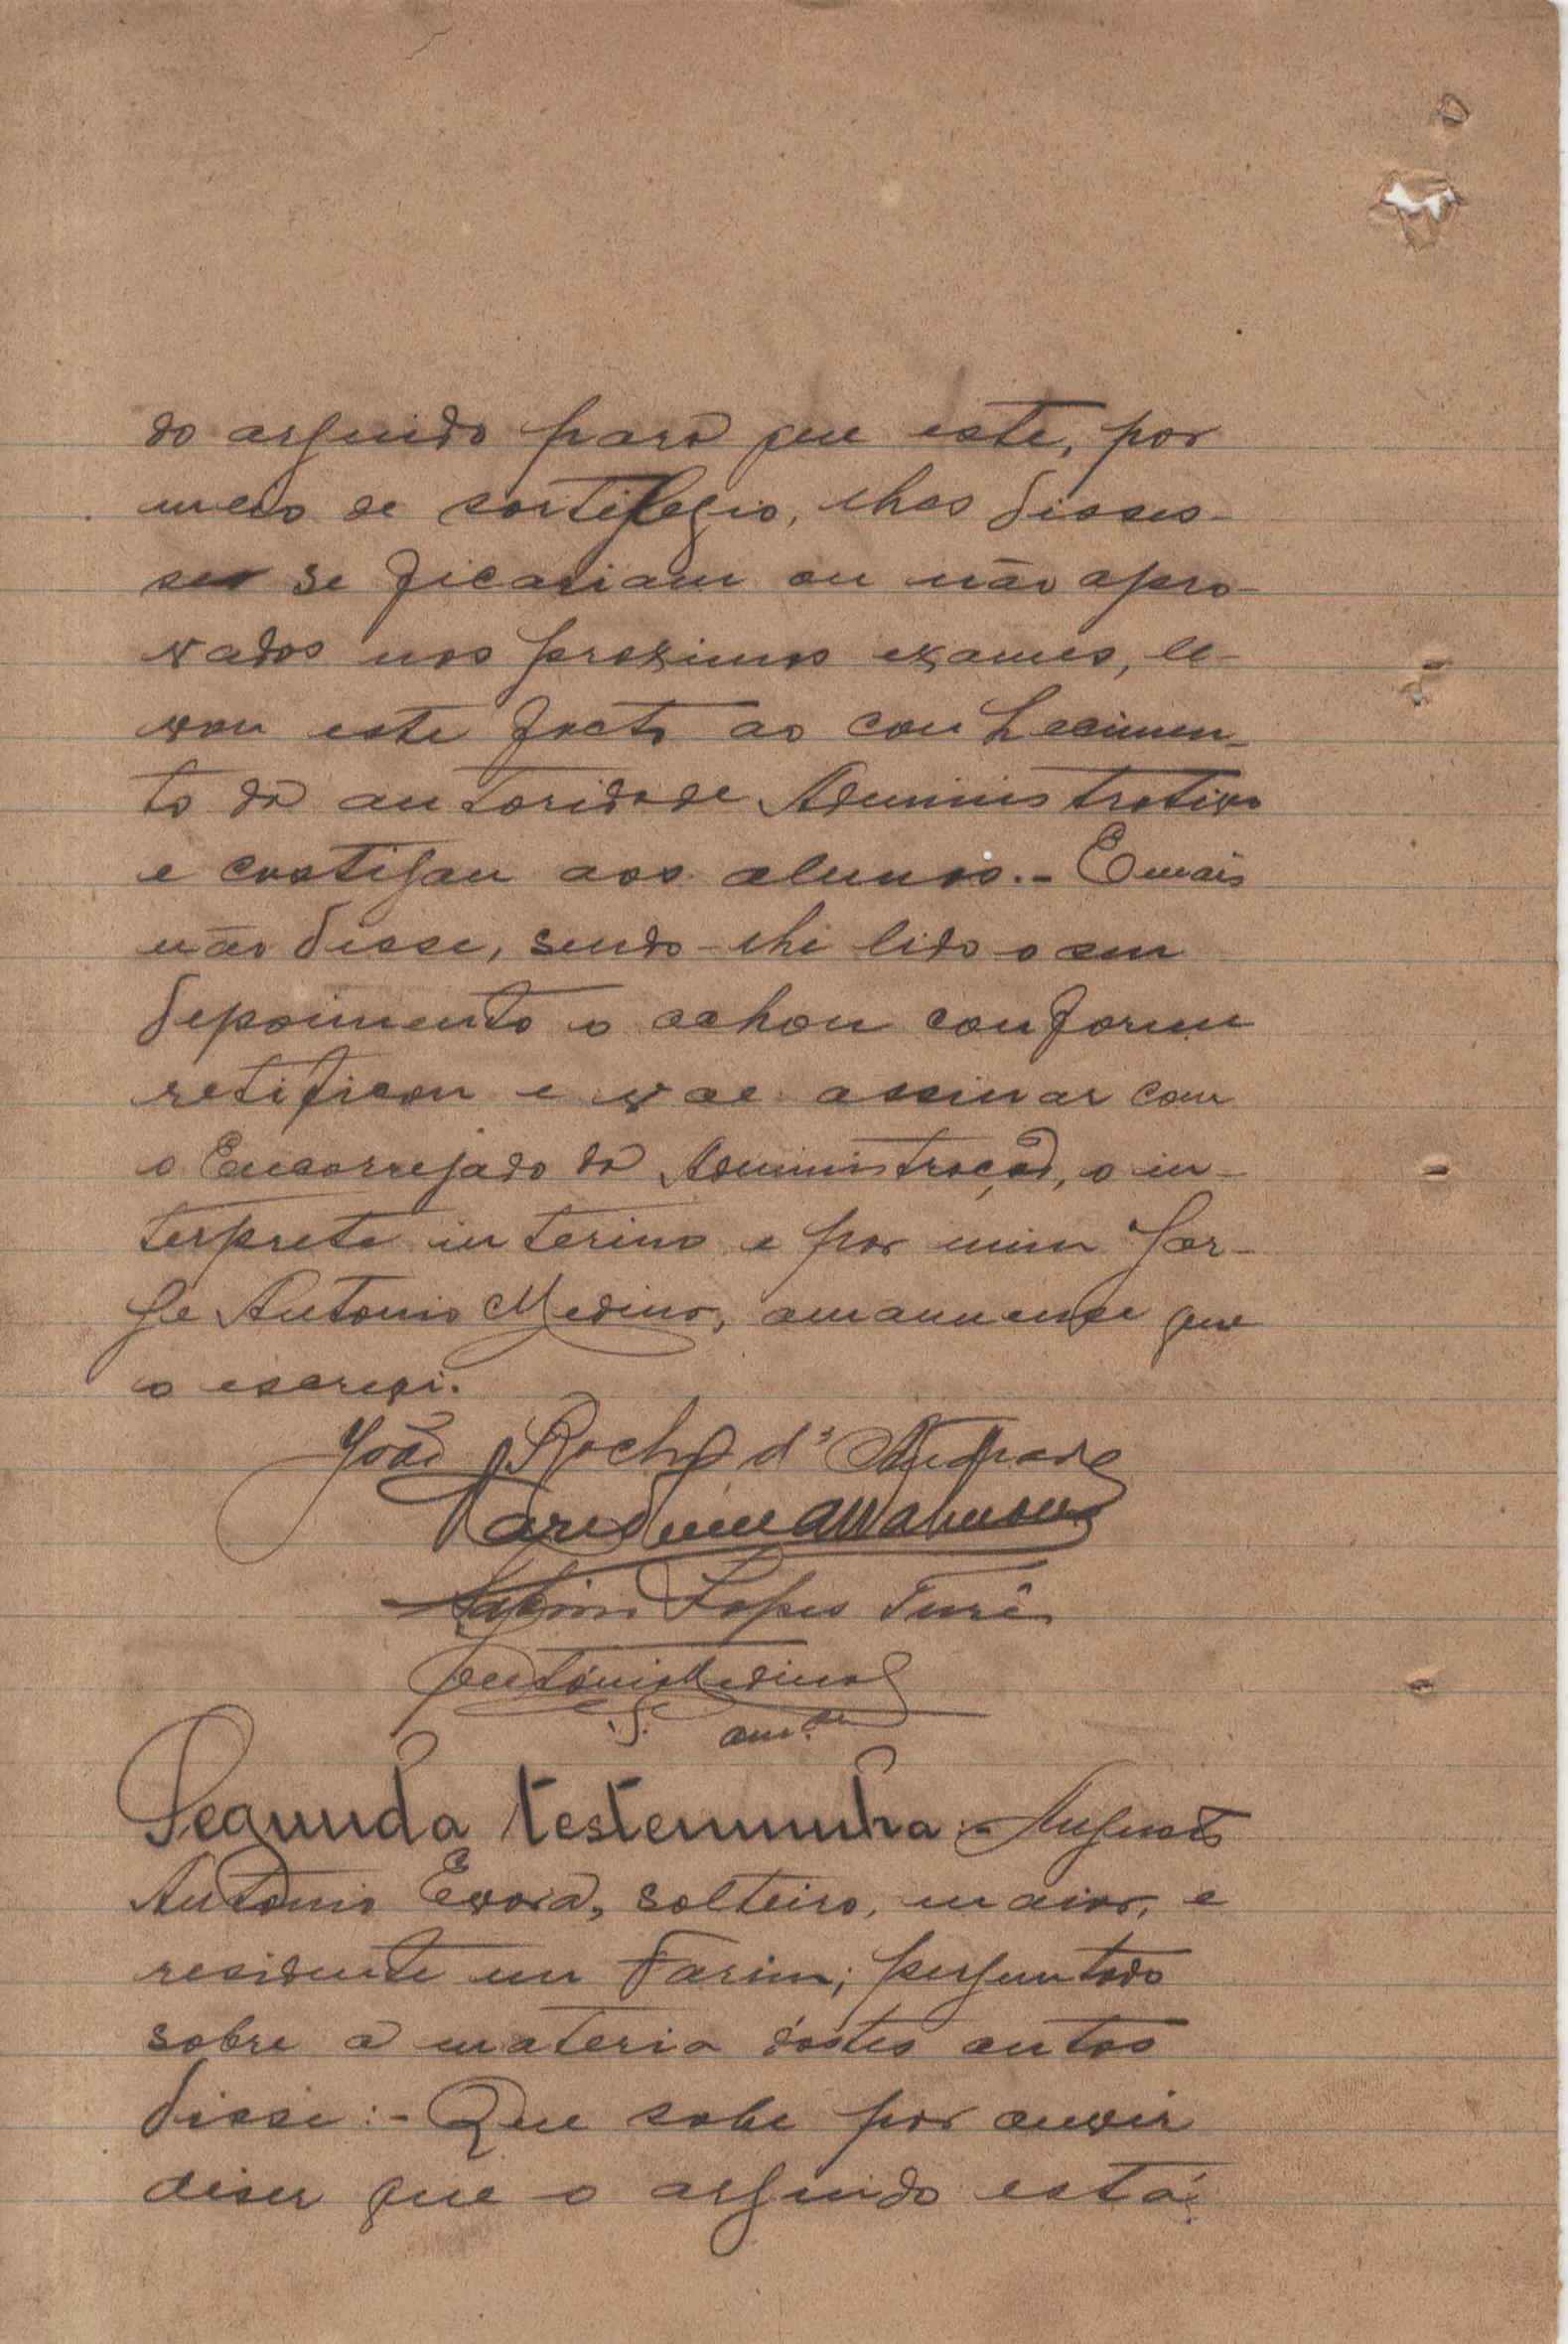 do arguido para que este, por
meio de sortilegio, lhes disses-
se se ficariam ou não apro-
vados nos proximos exames, le-
vou este facto ao conhecimen-
to da autoridade Administrativa
e castigou aos alunos.- E mais
não disse, sendo-lhe lido o seu
depoimento o achou conforme
retificou e vae assinar com
o Encarregado da Administração, o in-
terprete interino e por mim Jor-
ge Antonio Medina, amanuense que
o escrevi.
João Rocha d'Andrade
Lopes Turé
Antonio Medina
Segunda testemunha:- Augusto
Antonio Evora, solteiro, maior, e
residente em Farim; perguntado
sobre a materia dostes autos
disse:- Que sabe por ouvir
diser que o arguido está